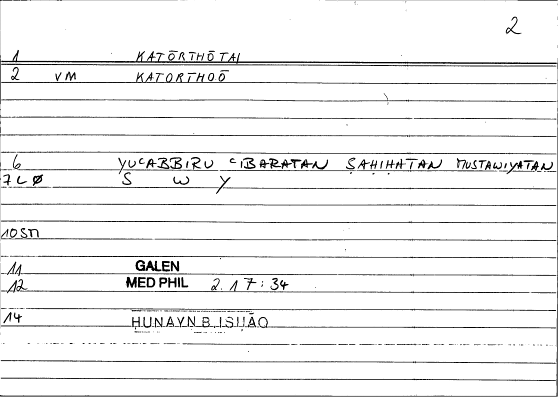 2
1 KATŌRTHŌTAI
2 VM KATORTHOŌ
6 YUʿABBIRU ʿIBARATAN ṢAḤĪḤATAN MUSTAWIYATAN
7LØ S W Y
10SM
11 GALEN
12 MED PHIL 2.17:34
14 HUNAYN B. ISḤĀQ